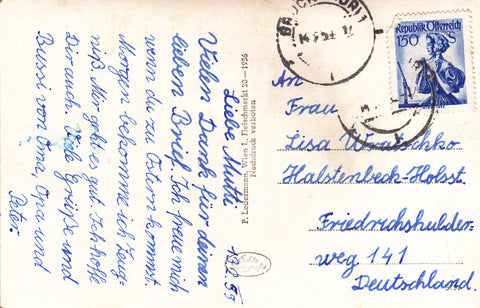 Liebe Mutti! 13.3.59
Vielen Dank für deinen
lieben Brief. Ich freue mich
wenn du zu Ostern kommst.
Morgen bekomme ich Zeug-
niß. Mir geht es gut. Ich hoffe
Dir auch. Viele Grüße und
Bussi von Oma, Opa und
Peter.
P. Ledermann, Wien I., Fleischmarkt 20 — 1956
Nachdruck verboten
Echte
Republik Österreich
150 S
BRUCK
An
Frau
Lisa Wratschko
Halstenbek-Holst.
Friedrichshulder-
weg 141
Deutschland.